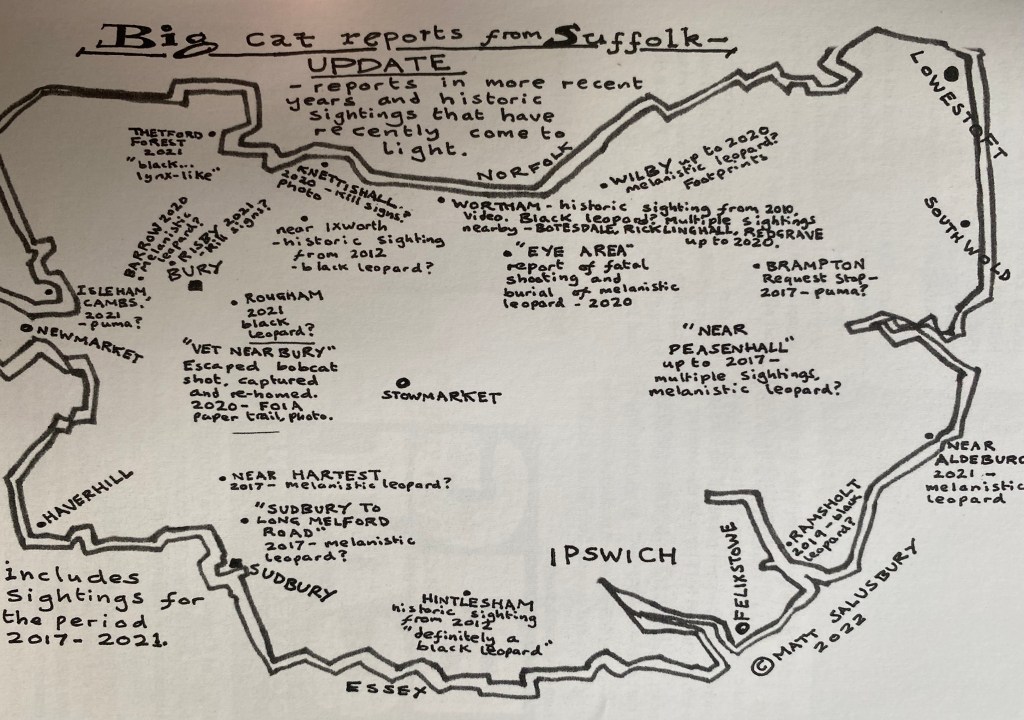 Big cat reports from Suffolk-
UPDATE
- reports in more recent
years and historic
sightings that have
recently come to
light.
NORFOLK
LOWESTOFT
THETFORD
FOREST
2021
"black...
lynx-like"
KNETTISHALL
2020 - Kill signs?
photo
WILBY up to 2020
melanistic leopard?
Footprints
WORTHAM - historic sighting from 2010,
Video. Black leopard? Multiple sightings
nearby - BOTESDALE, RICKLINGHALL, REDGRAVE
up to 2020.
SOUTHWOLD
BARROW 2020
-Melanistic
leopard?
RISBY 2021
- Kill signs?
BURY
near IXWORTH
- historic sighting
from 2012
- black leopard?
"EYE AREA"
report of fatal
shooting and
burial of melanistic
leopard - 2020
BRAMPTON
Request Stop-
2017-puma?
ISLEHAM
CAMBS."
2021
-puma?
NEWMARKET
ROUGHAM
2021
black
leopard?
"VET NEAR BURY"
Escaped bobcat
shot, captured
and re-homed.
2020- FOIA
paper trail, photo.
STOWMARKET
"NEAR
PEASENHALL"
up to 2017-
multiple sightings,
melanistic leopard?
NEAR
ALDEBURG
2021 -
melanistic
leopard
HAVERHILL
NEAR HARTEST
2017- melanistic leopard?
"SUDBURY TO
LONG MELFORD
ROAD"
2017- melanistic
leopard?
SUDBURY
IPSWICH
RAMSHOLT
2019-black
leopard?
FELIXSTOWE
HINTLESHAM
historic sighting
from 2012
"definitely a
black leopard"
includes
sightings for
the period
2017- 2021.
ESSEX
© MATT SALUSBURY
2022